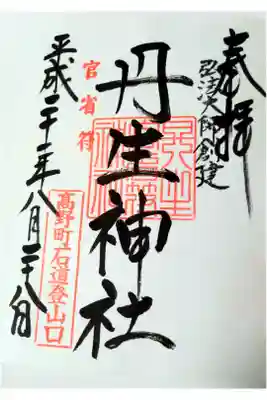 奉拝
弘法大師創建
丹生神社
官省符
平成二十一年八月二十八日
高野町石道登山口